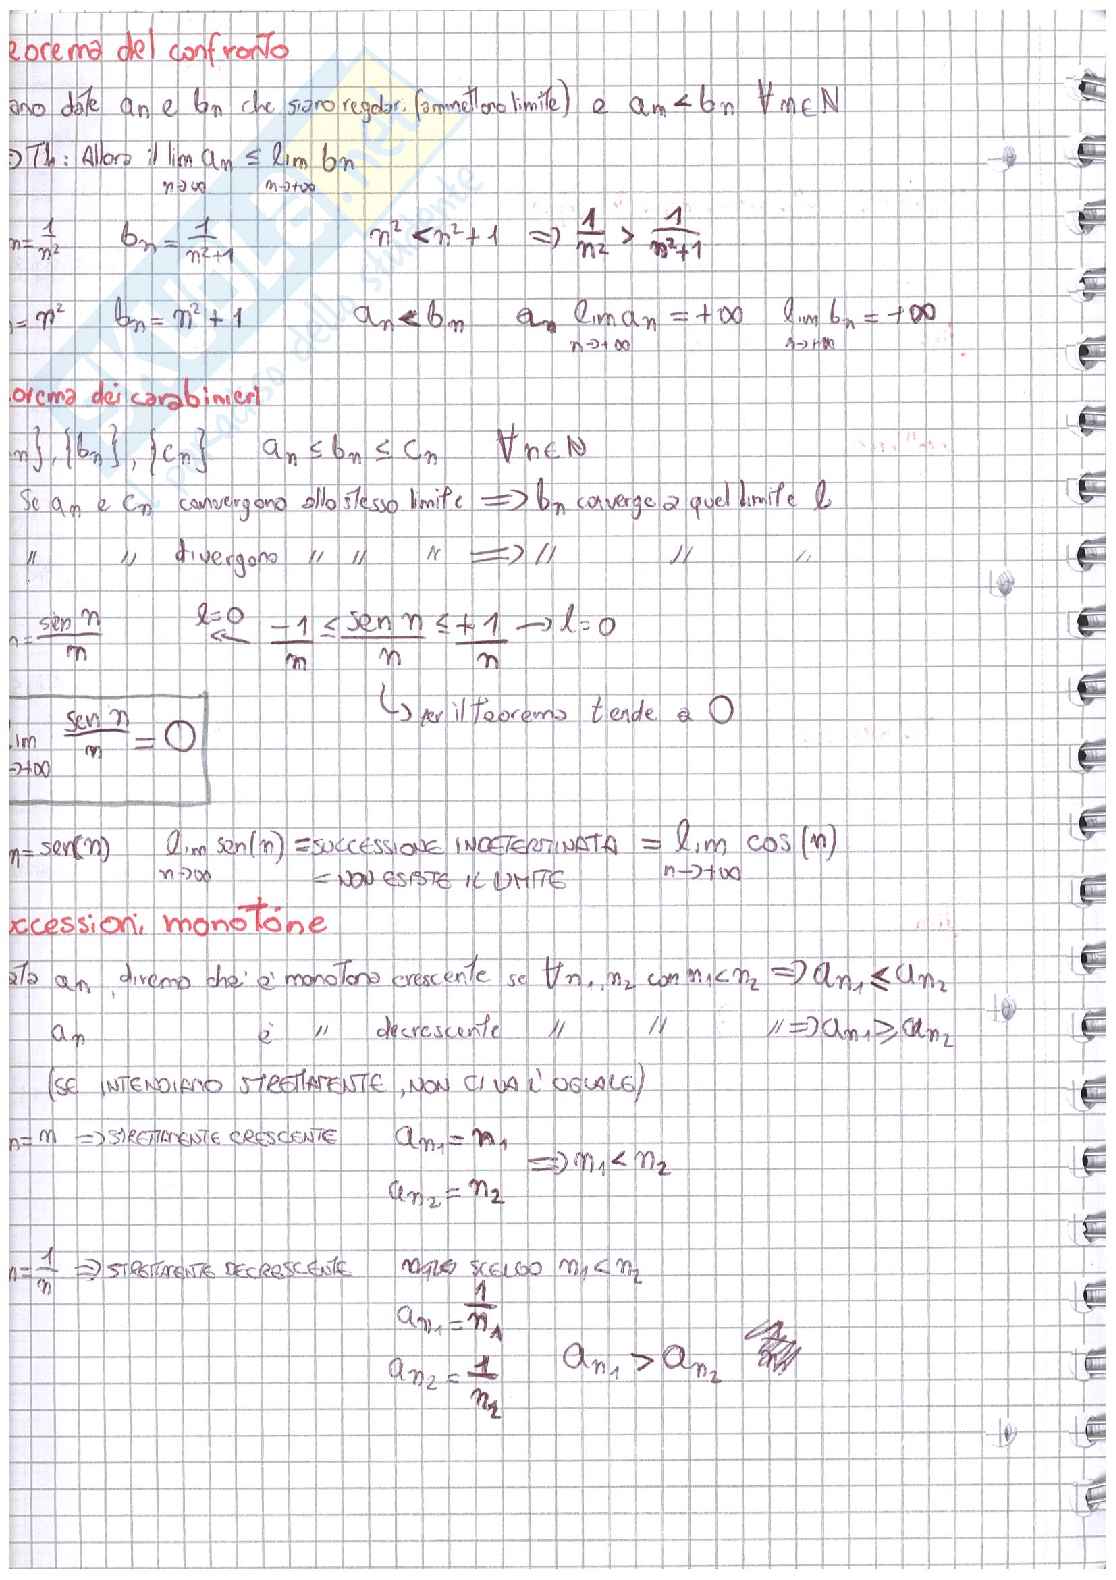 eorema del confronto
ano date an e bn che siano regolari (ammettono limite) e an < bn ∀ n ∈ N
⇒ Th: Allora il lim an ≤ lim bn
n→∞ n→+∞
n = 1/n² bn = 1/(n²+1) n² < n²+1 ⇒ 1/n² > 1/(n²+1)
= n² bn = n²+1 an < bn an lim an = +∞ lim bn = +∞
n→+∞ n→+∞
orema dei carabinieri
n}, {bn}, {cn} an ≤ bn ≤ cn ∀ n ∈ N
Se an e cn convergono allo stesso limite ⇒ bn converge a quel limite l
" " divergono " " " ⇒ " " "
n = sen n/n l=0 ← -1/n ≤ sen n/n ≤ +1/n → l=0
↳ per il teorema tende a 0
lim sen n/n = 0
→+∞
n = sen(n) lim sen(n) = SUCCESSIONE INDETERMINATA = lim cos(n)
n→∞ = NON ESISTE IL LIMITE n→+∞
ccessioni monotòne
ata an, diremo che è monotona crescente se ∀ n1, n2 con n1 < n2 ⇒ an1 ≤ an2
an è " decrescente " " " ⇒ an1 ≥ an2
(SE INTENDIAMO STRETTAMENTE, NON CI VA L'UGUALE)
n = n ⇒ STRETTAMENTE CRESCENTE an1 = n1
⇒ n1 < n2
an2 = n2
n = 1/n ⇒ STRETTAMENTE DECRESCENTE SCELGO n1 < n2
an1 = 1/n1
an2 = 1/n2 an1 > an2
SKUOLA.net
il paradiso dello studente